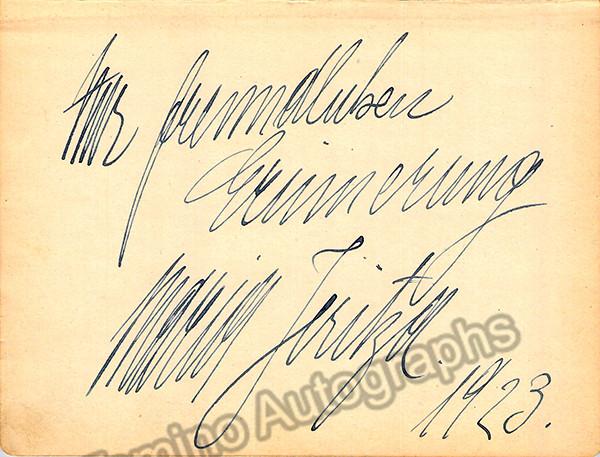 Zur freundlichen
Erinnerung
Maria Jeritza
1923.
Tamino Autographs